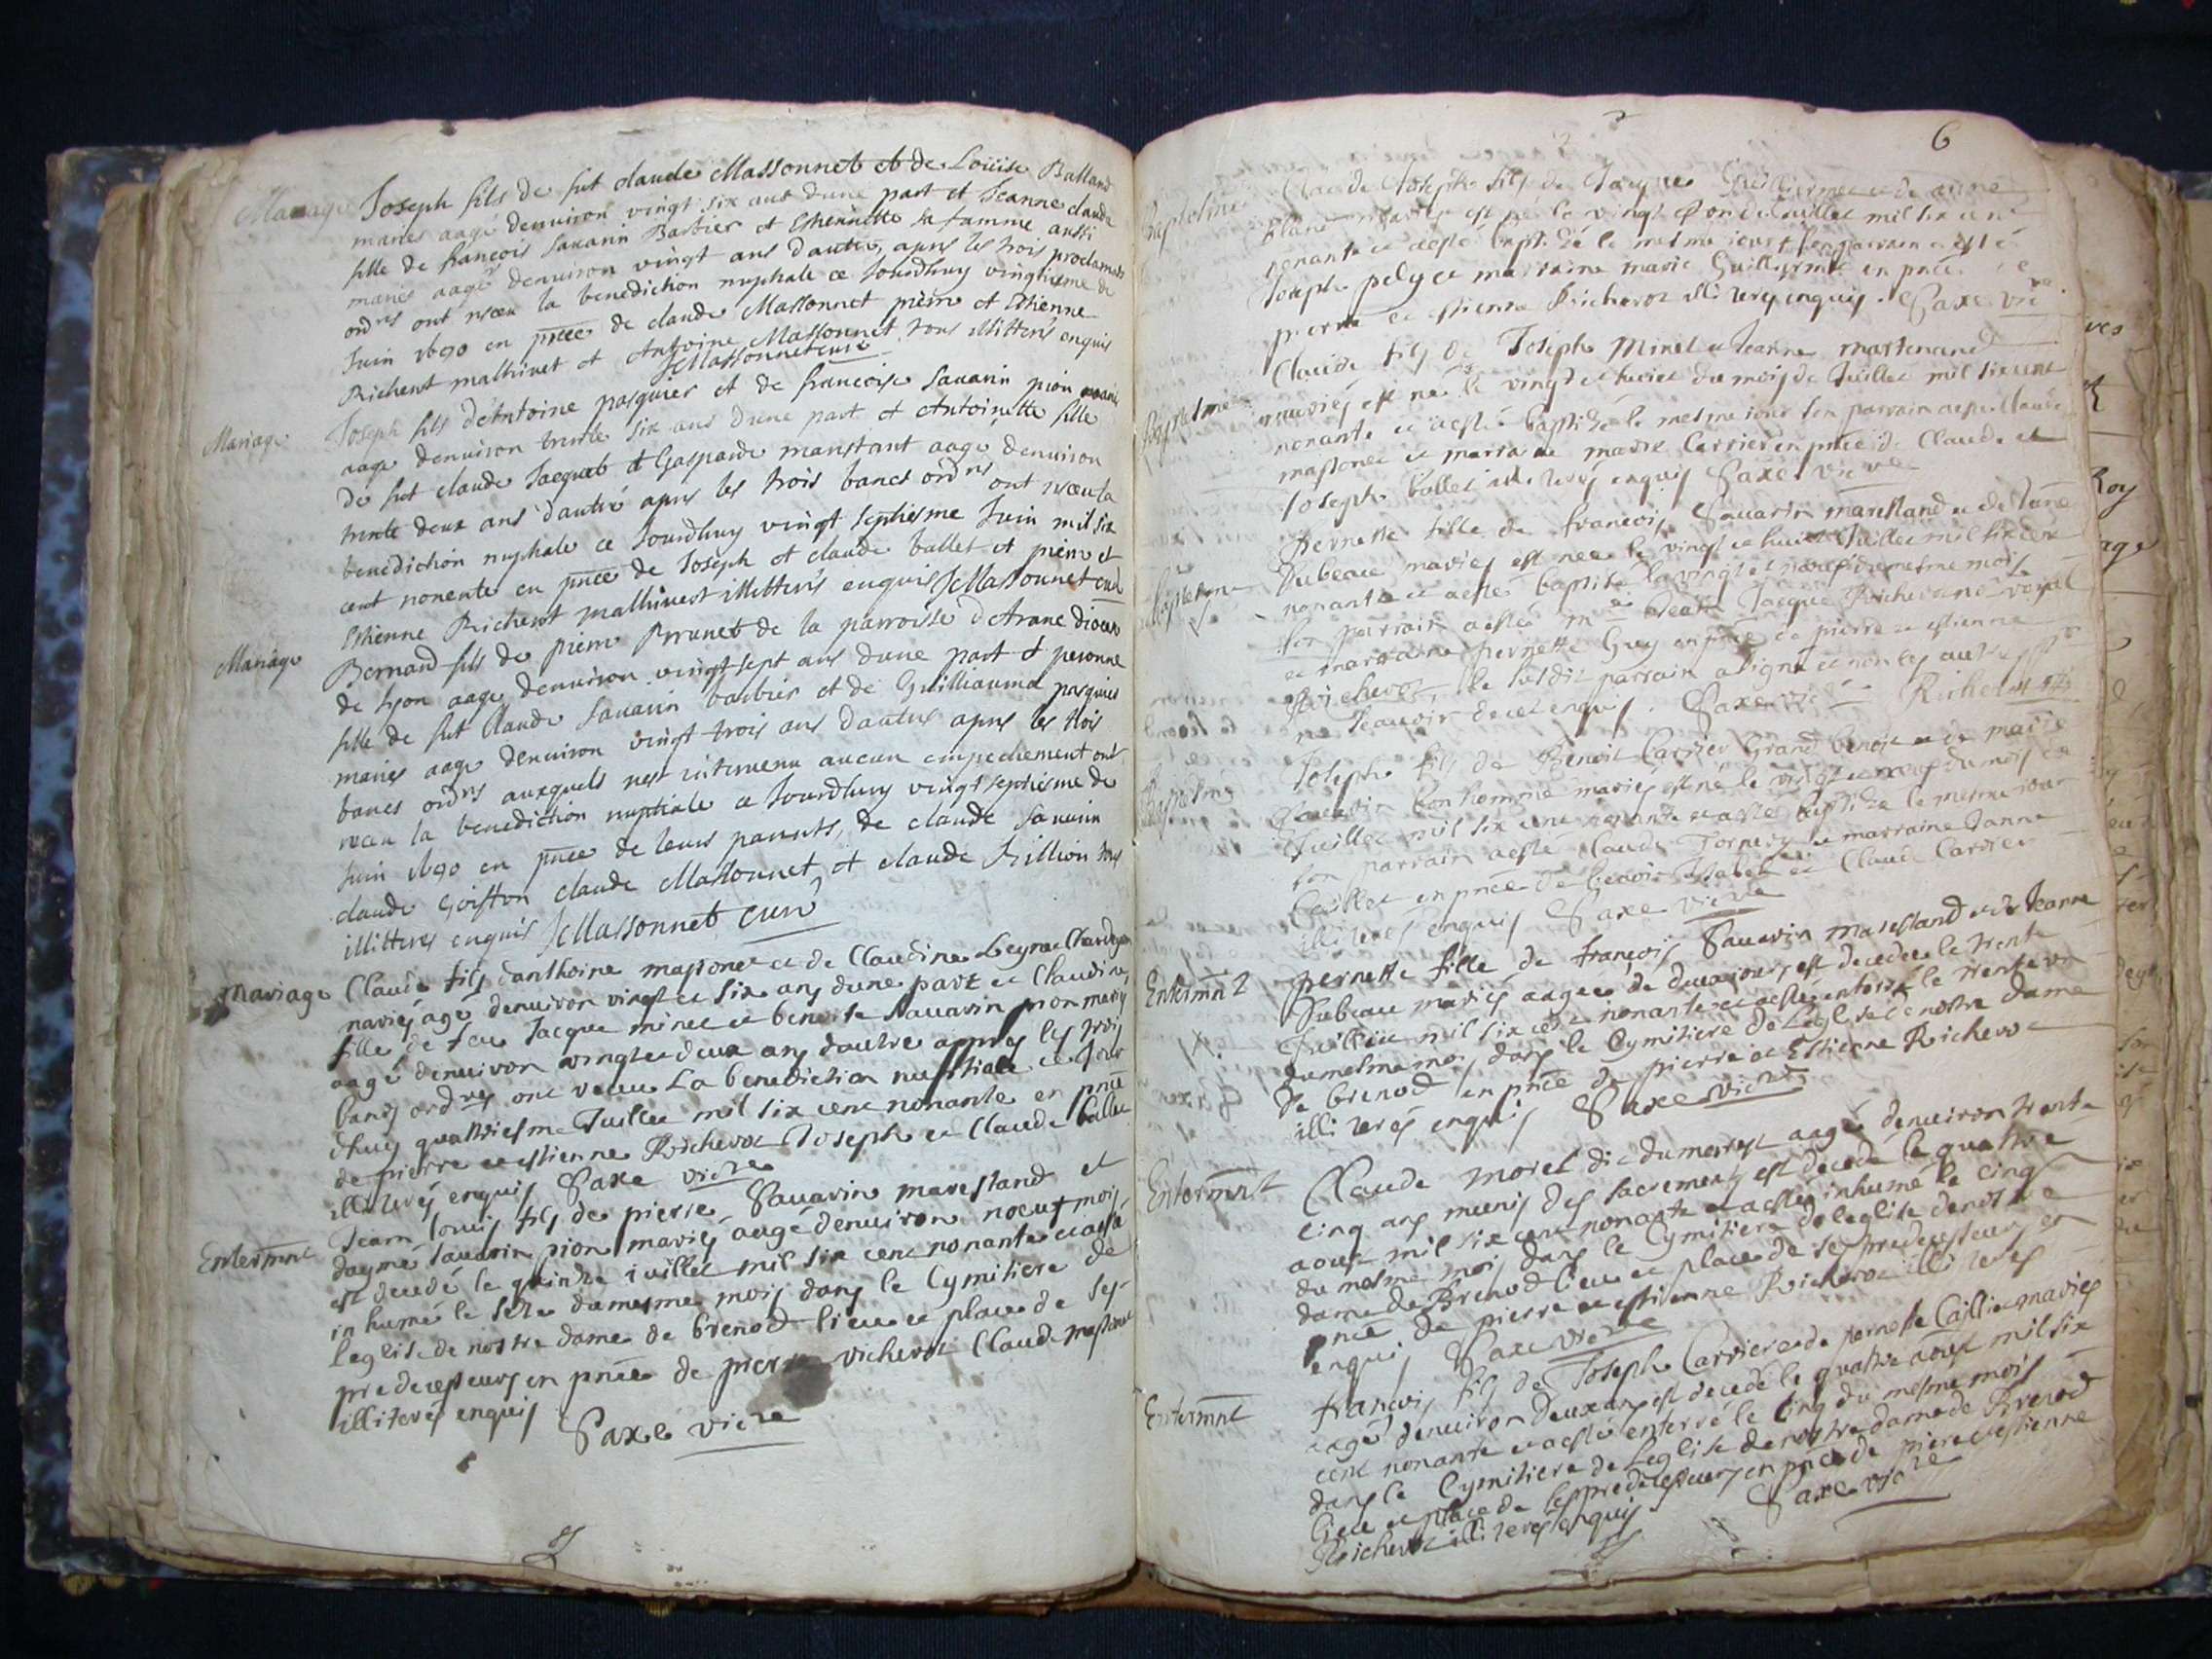 Mariage Joseph fils de fut claude Massonnet et de Loüise Balland
mariés aagé denuiron vingt six ans dune part et Jeanne claude
fille de françois Sauarin Barbier et Ethennette sa famme aussi
mariés aagé denuiron vingt ans dautre, apres les trois proclamats
ordres ont receu la benediction nuptiale ce Jourdhuy vingtiesme de
Juin 1690 en pnce de claude Massonnet pierre et Ethienne
Richerot mathieuet et Antoine Massonnet tous illitterés enquis
JMassonnet curé
Mariage Joseph fils dAntoine pasquier et de francoise Sauarin pion mariés
aagé denuiron trente six ans dune part et Antoinette fille
de fut claude Jacquet et Gasparde manstant aagé denuiron
trente deux ans dautre apres les trois bancs ordres ont receu la
benediction nuptiale ce Jourdhuy vingt septiesme Juin mil six
cent nonente en pnce de Joseph et claude ballet et pierre et
Ethienne Richerot mathieuet illitterés enquis JMassonnet curé
Mariage Bernard fils de pierre Brunet de la parroisse dArane dioces
de lyon aagé denuiron vingt sept ans dune part et peronne
fille de fut Claude Sauarin barbier et de Guilliauma pasquier
mariés aagé denuiron vingt trois ans dautre apres les trois
bancs ordres auxquels nest interuenu aucun empechement ont
receu la benediction nuptiale ce Jourdhuy vingt septiesme de
Juin 1690 en pnce de leurs parents, de claude Sauarin
claude Goisson claude Massonnet et claude Billion tous
illitterés enquis JMassonnet curé
Mariage Claude fils danthoine massonet et de Claudine
mariés agé denuiron vingt et six ans dune part et Claudine
fille de feu Jacque minet et benoite Sauarin pion mariés
aagé denuiron vingt et deux ans dautre apprés les trois
bancs ordres ont receu La benediction nuptiale ce Jour
dhuy quattriesme Juillet mil six cent nonante en pnce
de pierre et estienne Richerot Joseph et Claude ballet
illiterés enquis Saxe vicre
Enterment Jean louis fils de pierre Sauarin marestand et
daymé Sauarin pion mariés aagé denuiron noeuf mois
est decedé le quinze iuillet mil six cent nonante et a esté
inhumé le seze du mesme mois dans le Cymitiere de
leglise de nostre dame de brenod lieu et place de ses
predecesseurs en pnce de pierre richerot Claude massonet
illiterés enquis
Saxe vicre
6
Baptesme Claude Joseph fils de Jacque Guilliermet et de anne
blanc mariés est né le vingt Juillet mil six cent
nonante et a esté baptisé le mesme iour son parrain a esté
Joseph et marraine marie Guillermet en pnce de
pierre et estienne Richerot illiterés enquis. Saxe vicre
Baptesme Claude fils de Joseph Minet et Jeanne martenand
mariés est né le vingt et huict du mois de Juillet mil six cent
nonante et a esté baptisé le mesme iour son parrain a esté Claude
massonet et marraine marie Carrier en pnce de Claude et
Joseph ballet illiterés enquis Saxe vicre
Baptesme pernette fille de francois Sauarin marestand et de Jeanne
Dubeau mariés est neé le vingt et huict Juillet mil six cent
nonante et a esté baptisé le vingt et noeuf du mesme mois
son parrain a esté Jacque Richerot royal
et marraine pernette Guy en pnce de pierre et estienne
Richerot, le susdit parrain a signé et non les autres pour
ne scauoir de cel enquis. Saxe vicre Richerot
Baptesme Joseph fils de Benoit Carrier Grand benoit et de marie
Sauarin bonhomme mariés est né le vingt et noeuf du mois de
Juillet mil six cent nonante et a esté baptisé le mesme iour
son parrain a esté Claude Tornery et marraine Janne
Caillet en pnce de benoit et Claude Carrier
illiterés enquis Saxe vicre
Enterment pernette fille de francois Sauarin marestand et de Jeanne
Dubeau mariés aagée de deux iours est decedee le trente
Juillet mil six cent nonante et a esté enterré le trente vn
du mesme mois dans le Cymitiere de Leglise de nostre dame
de brenod en pnce de pierre et Estienne Richerot
illiterés enquis Saxe vicre
Enterment Claude Morel dit dumarest aagé denuiron trente
cinq ans munis des sacrements est decedé le quattre
aout mil six cent nonante et a esté inhumé le cinq
du mesme mois dans le Cymitiere de leglise de nostre
dame de Brenod lieu et place de ses predecesseurs en
pnce de pierre et estienne Richerot illiterés
enquis Saxe vicre
Enterment francois fils de Joseph Carrier et de pernette Caillet mariés
aagé denuiron deux ans est decedé le quattre aoust mil six
cent nonante et a esté enterré le cinq du mesme mois
dans le Cymitiere de Leglise de nostre dame de Brenod
lieu et place de ses predecesseurs en pnce de pierre et estienne
Richerot illiterés enquis Saxe vicre